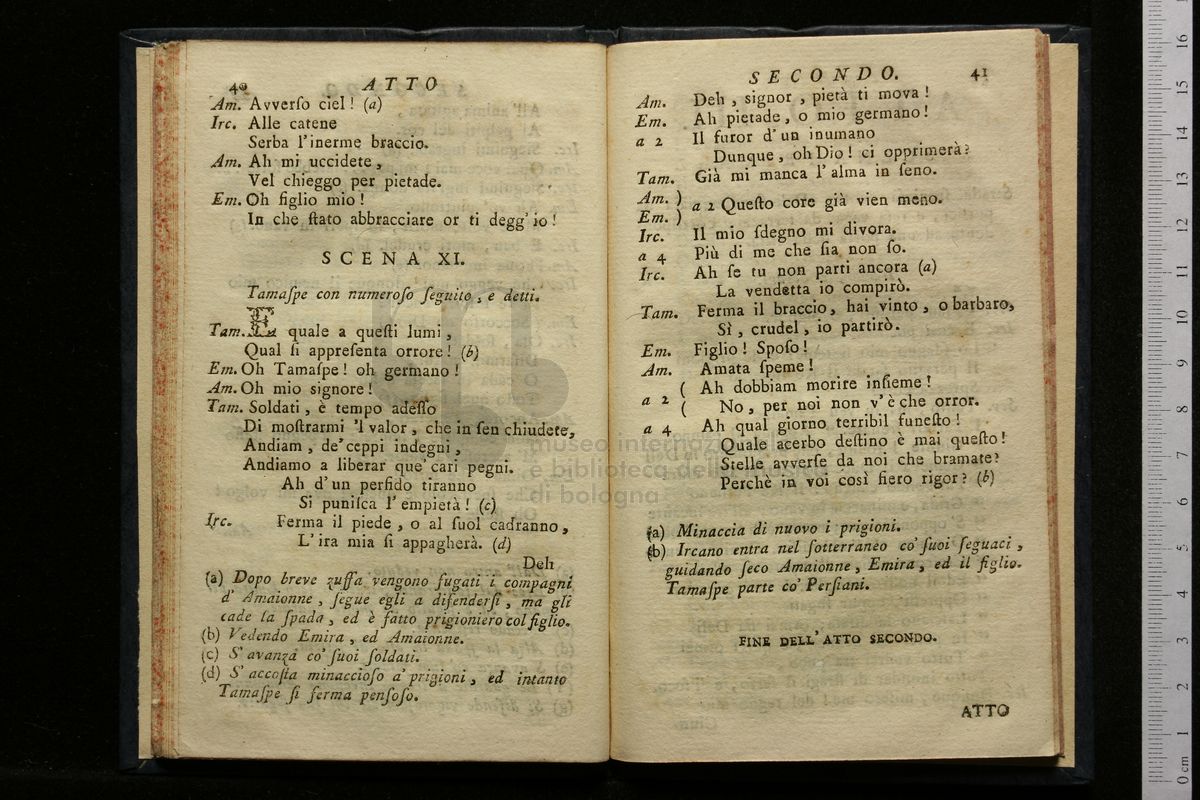 40 ATTO
Am. Avverſo ciel! (a)
Irc. Alle catene
Serba l'inerme braccio.
Am. Ah mi uccidete,
Vel chieggo per pietade.
Em. Oh figlio mio!
In che ſtato abbracciare or ti degg' io!
SCENA XI.
Tamaſpe con numeroſo ſeguito, e detti.
Tam. E quale a queſti lumi,
Qual ſi appreſenta orrore! (b)
Em. Oh Tamaſpe! oh germano!
Am. Oh mio signore!
Tam. Soldati, è tempo adeſſo
Di moſtrarmi 'l valor, che in ſen chiudete,
Andiam, de' ceppi indegni,
Andiamo a liberar que' cari pegni.
Ah d'un perfido tiranno
Si puniſca l'empietà! (c)
Irc. Ferma il piede, o al ſuol cadranno,
L'ira mia ſi appagherà. (d)
Deh
(a) Dopo breve zuffa vengono fugati i compagni
d' Amaionne, ſegue egli a difenderſi, ma gli
cade la ſpada, ed è fatto prigioniero col figlio.
(b) Vedendo Emira, ed Amaionne.
(c) S' avanza co' ſuoi ſoldati.
(d) S' accoſta minaccioſo a' prigioni, ed intanto
Tamaſpe ſi ferma penſoſo.
SECONDO. 41
Am. Deh, signor, pietà ti mova!
Em. Ah pietade, o mio germano!
a 2 Il furor d'un inumano
Dunque, oh Dio! ci opprimerà?
Tam. Già mi manca l'alma in ſeno.
Am. )
Em. ) a 2 Queſto core già vien meno.
Irc. Il mio ſdegno mi divora.
a 4 Più di me che ſia non ſo.
Irc. Ah ſe tu non parti ancora (a)
La vendetta io compirò.
Tam. Ferma il braccio, hai vinto, o barbaro,
Sì, crudel, io partirò.
Em. Figlio! Spoſo!
Am. Amata ſpeme!
a 2 ( Ah dobbiam morire inſieme!
( No, per noi non v'è che orror.
a 4 Ah qual giorno terribil funeſto!
Quale acerbo deſtino è mai queſto!
Stelle avverſe da noi che bramate?
Perchè in voi così fiero rigor? (b)
(a) Minaccia di nuovo i prigioni.
(b) Ircano entra nel ſotterraneo co' ſuoi ſeguaci,
guidando ſeco Amaionne, Emira, ed il figlio.
Tamaſpe parte co' Perſiani.
FINE DELL' ATTO SECONDO.
ATTO
museo internazionale
e biblioteca della musica
di bologna
0 cm 1 2 3 4 5 6 7 8 9 10 11 12 13 14 15 16